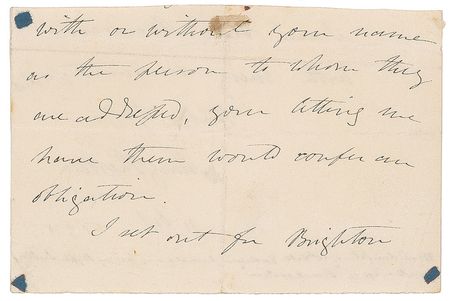 with or without your name
as the person to whom they
are addressed, your letting me
have them would confer an
obligation.
I set out for Brighton